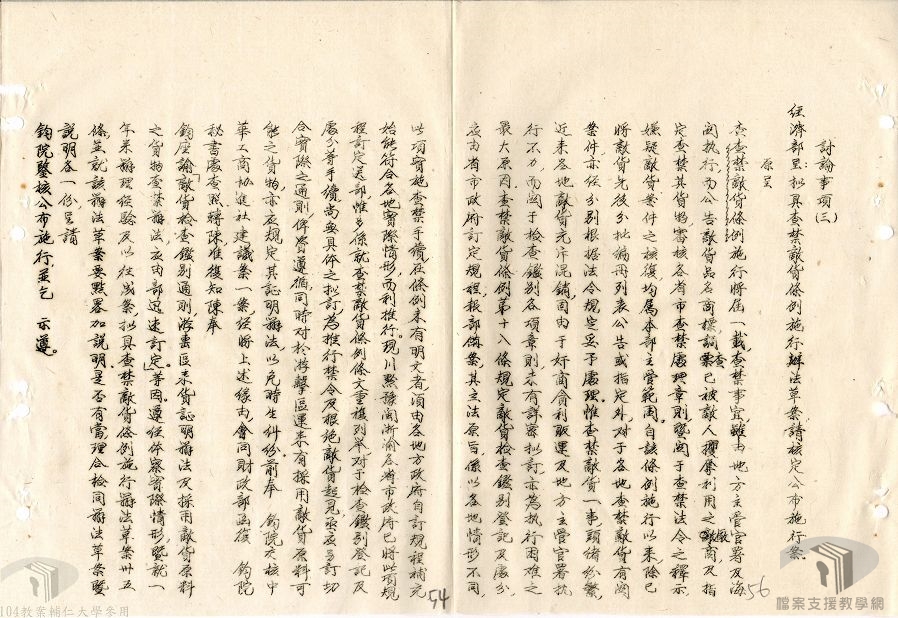 討論事項(三)
經濟部呈:擬具查禁敵貨條例施行辦法草案請核定公布施行案
原呈
查查禁敵貨條例施行將屆一載查禁事宜雖由地方主管官署及海
關執行而公告敵貨品名商標調查已被敵人攫奪利用之敵商及指
定查禁其貨物審核各省市查禁處理章則暨關于查禁法令之釋示
嫌疑敵貨案件之核復均屬本部主管範圍自該條例施行以來除已
將敵貨先後分批編冊列表公告或指定外對于各地查禁敵貨有關
案件亦經分別根據法令規定妥予處理。惟查禁敵貨一事頭緒紛繁
近來各地敵貨充斥混銷固由于奸商貪利販運及地方主管官署執
行不力而關于檢查鑑別各項章則未有詳密擬訂亦為執行困難之
最大原因查禁敵貨條例第十八條規定敵貨檢查鑑別登記及處分
應由省市政府訂定規程報部備案其立法原旨係以各地情形不同
以項實施查禁手續在條例未有明文者須由各地方政府自訂規程補充
始能符合各地實際情形而利推行。現川黔贛閩浙渝各省市政府已將此項規
程訂定送部惟多係就查禁敵貨條例條文重複列舉對于檢查鑑別登記及
處分等手續尚無具体之擬訂為推行禁令及根絕敵貨起見亟應另訂切
合實際之通則俾資遵循同時對於游擊區運來有採用敵貨原料可
能之貨物亦應規定其証明辦法以免時生糾紛前奉 鈞院交核中
華工商協進社建議案一案經將上述緣由會同財政部函復 鈞院
秘書處查照轉陳准復知陳奉
鈞座諭「敵貨檢查鑑別通則游擊區來貨証明辦法及採用敵貨原料
之貨物查禁辦法應由部迅速訂定」等因遵經体察實際情形暨就一
年來辦理經驗及以往成案擬具查禁敵貨條例施行辦法草案卅五
條並就該辦法草案要點畧加說明是否有當理合檢同辦法草案暨
說明各一份呈請
鈞院鑒核公布施行並乞 示遵。
56
54
檔案支援教學網
104教案輔仁大學參用